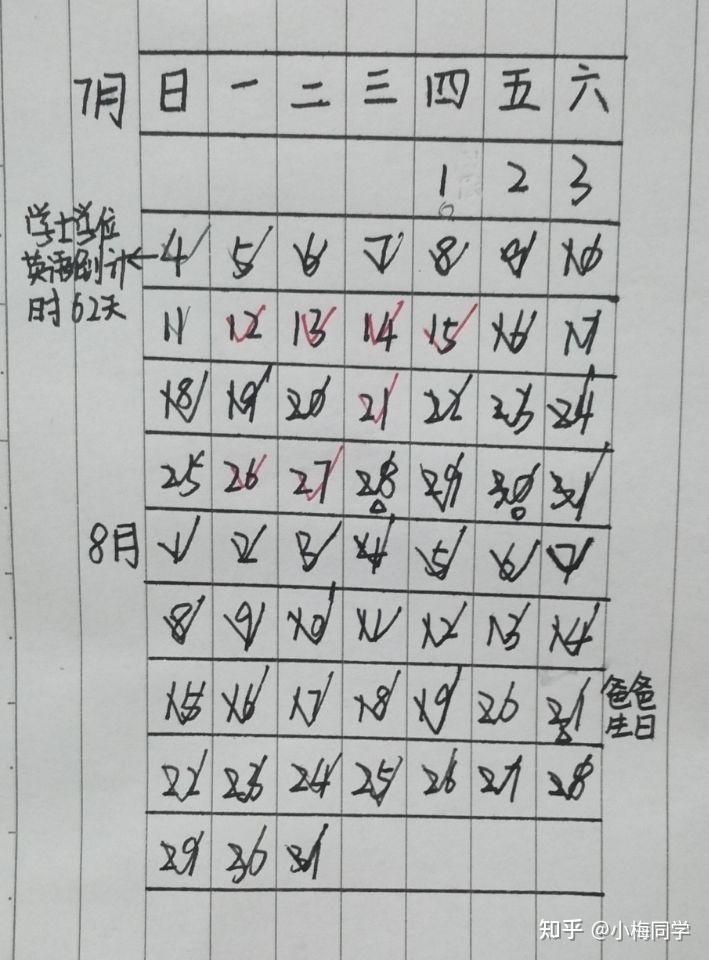 7月 日 一 二 三 四 五 六
1 2 3
学士学位
英语倒计
时62天
4 5 6 7 8 9 10
11 12 13 14 15 16 17
18 19 20 21 22 23 24
25 26 27 28 29 30 31
8月 1 2 3 4 5 6 7
8 9 10 11 12 13 14
15 16 17 18 19 20 21
爸爸
生日
22 23 24 25 26 27 28
29 30 31
知乎 @小梅同学